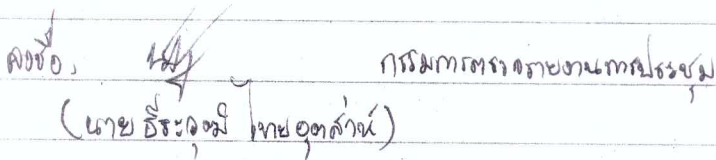 ลงชื่อ, กรรมการตรวจรายงานการประชุม
(นายธีระวุฒิ ไทยอุตส่าห์)